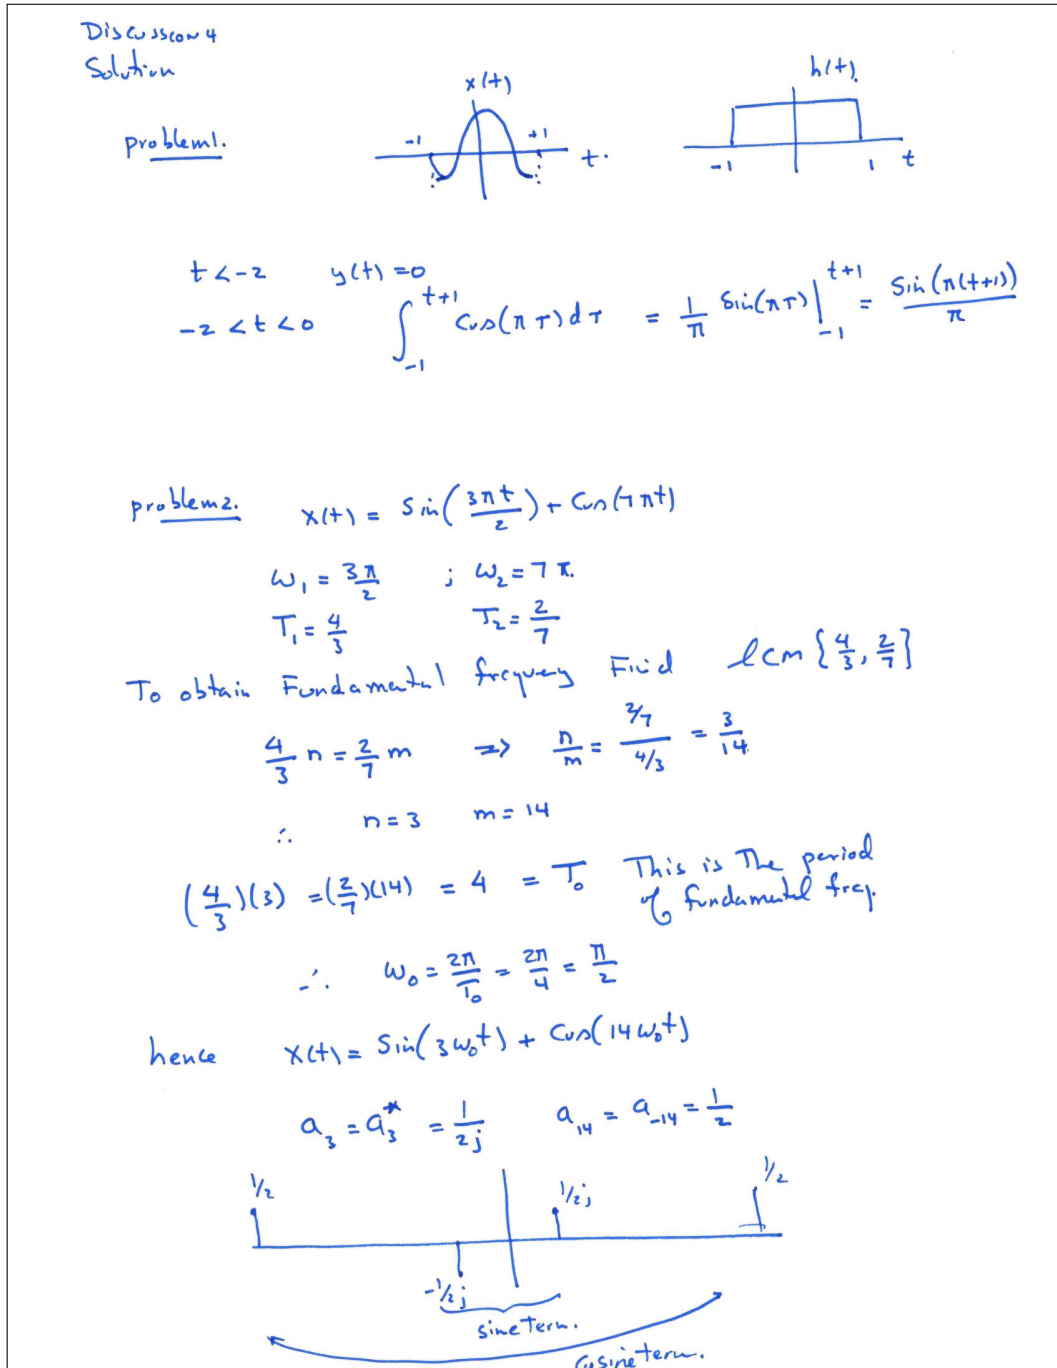 Discussion 4
Solution
problem1.
x(t)
-1 +1 t.
h(t).
-1 1 t
t < -2 y(t) = 0
-2 < t < 0 ∫_{-1}^{t+1} Cos(πτ)dτ = 1/π Sin(πτ)|_{-1}^{t+1} = Sin(π(t+1))/π
problem2. x(t) = Sin(3πt/2) + Cos(7πt)
ω₁ = 3π/2 ; ω₂ = 7π.
T₁ = 4/3 T₂ = 2/7
To obtain Fundamental frequency Find lcm {4/3, 2/7}
4/3 n = 2/7 m => n/m = (2/7)/(4/3) = 3/14
∴ n = 3 m = 14
(4/3)(3) = (2/7)(14) = 4 = T₀ This is The period
of fundamental freq.
∴ ω₀ = 2π/T₀ = 2π/4 = π/2
hence x(t) = Sin(3ω₀t) + Cos(14ω₀t)
a₃ = a₃* = 1/2j a₁₄ = a₋₁₄ = 1/2
1/2 1/2j 1/2
-1/2j
sine term.
Cosine term.